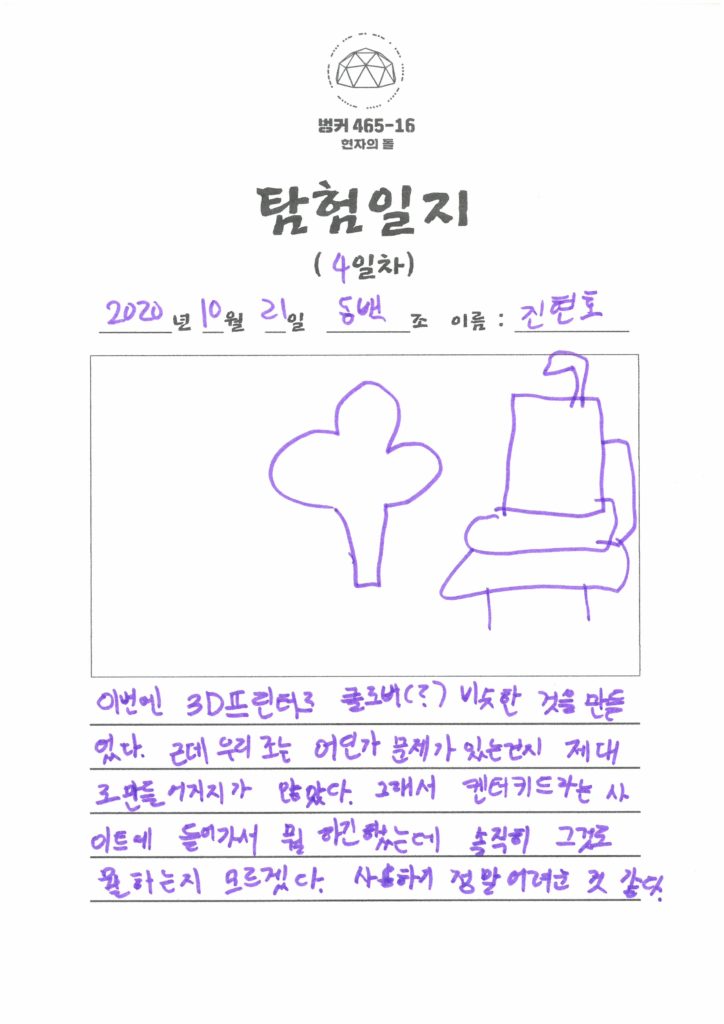 벙커 465-16
현자의 돌
탐험일지
( 4일차)
2020 년 10 월 21 일 동백 조 이름 : 진현호
이번에 3D프린터로 클로버(?) 비슷한 것을 만들
었다. 근데 우리 조는 어딘가 문제가 있는건지 제대
로만들어지지가 않았다. 그래서 켄터키드라는 사
이트에 들어가서 뭘 하긴했는데 솔직히 그것로
뭘하는지 모르겠다. 사용하기 정말어려운 것 같다.